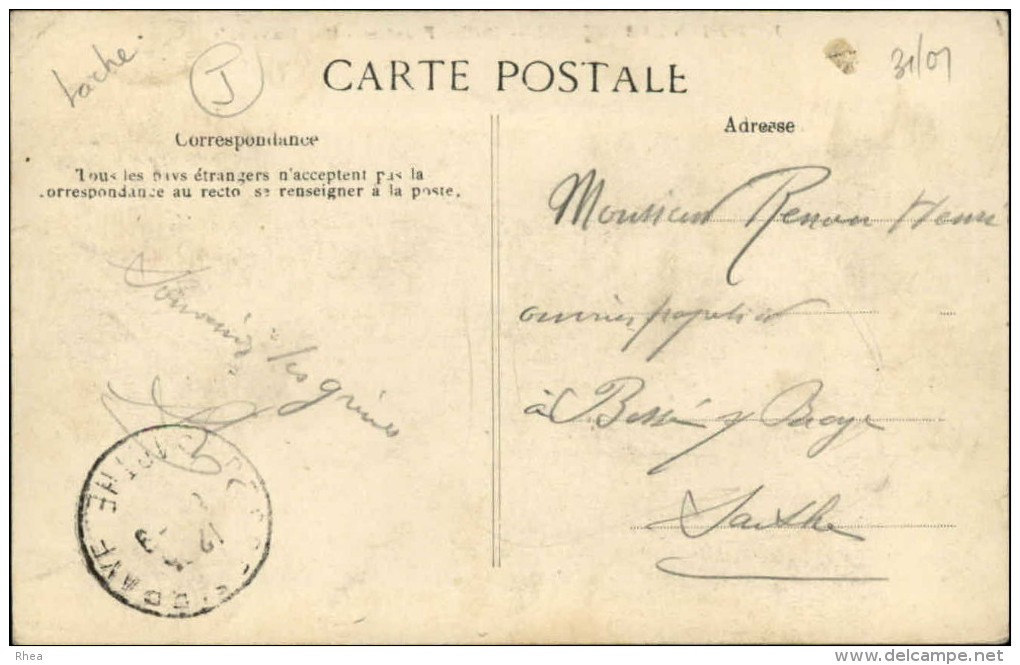 tache
J
31/07
CARTE POSTALE
Correspondance
Tous les pays étrangers n'acceptent pas la
correspondance au recto se renseigner à la poste.
Adresse
Monsieur Renvoi Henri
ouvrier papetier
à Bessé s/ Braye
Sarthe
Souvenir
BRAYE SARTHE
Rhea
www.delcampe.net